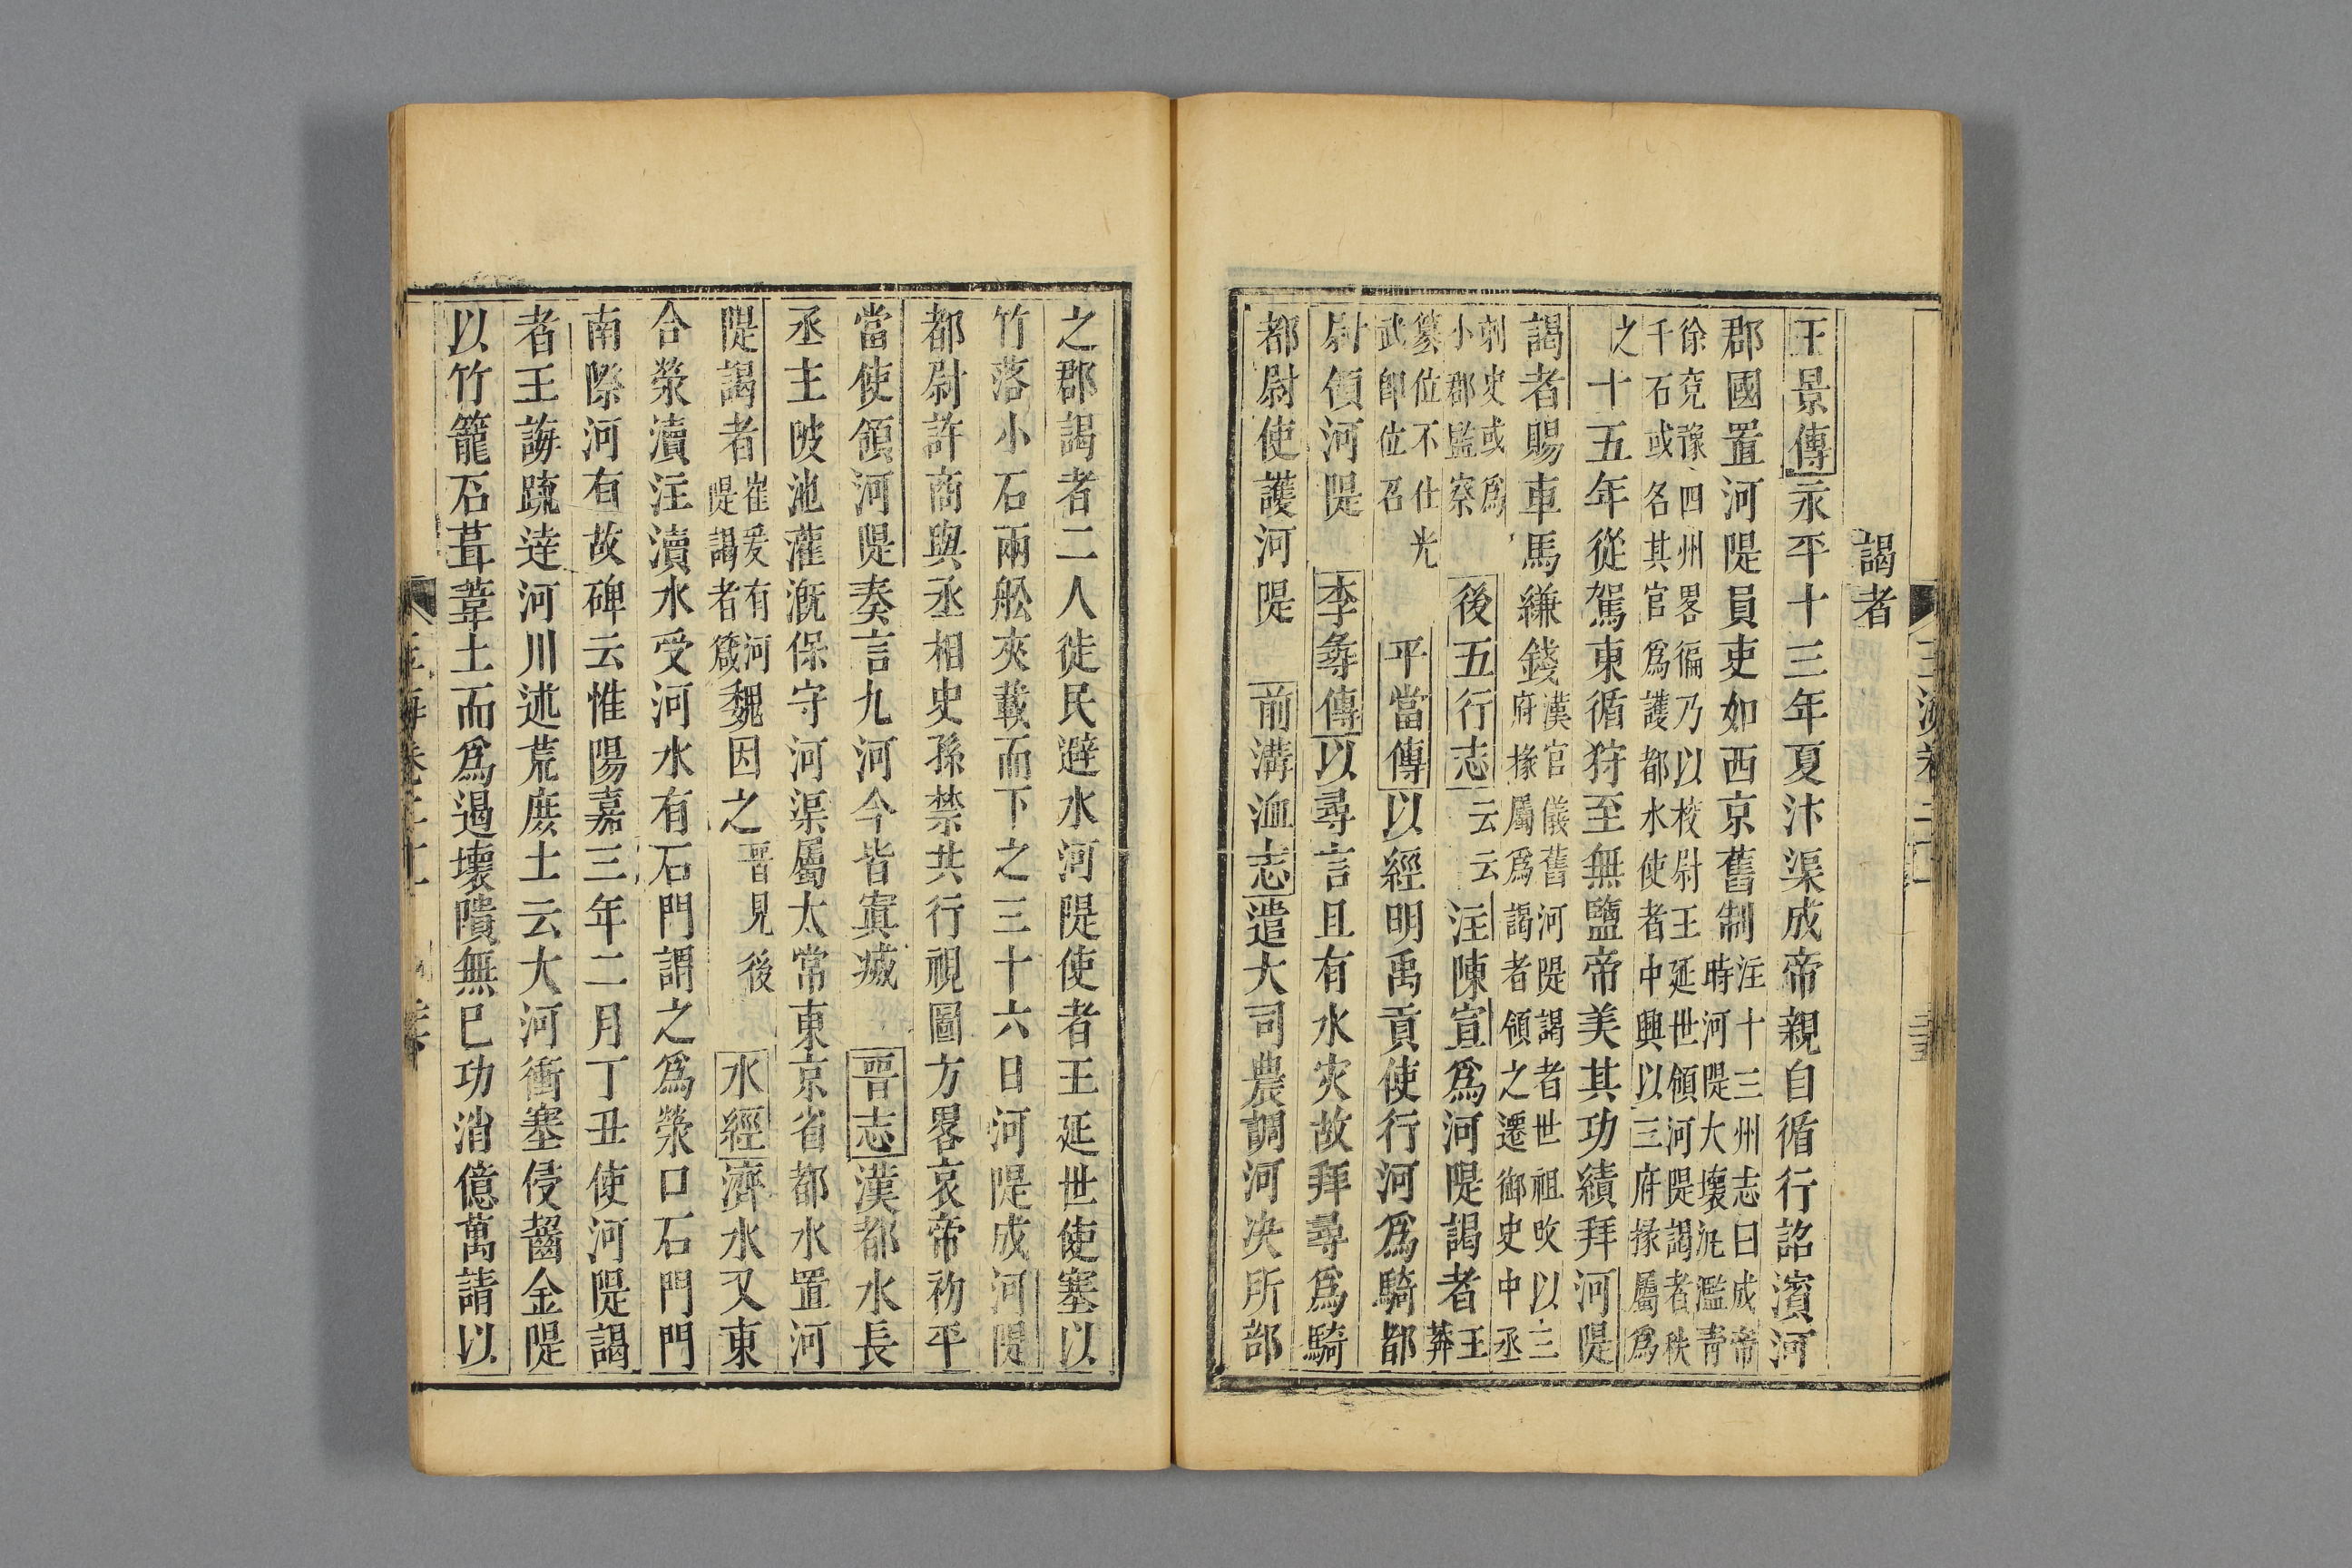 謁者
王景傳永平十三年夏汴渠成帝親自循行詔濱河
郡國置河隄員吏如西京舊制注十三州志曰成帝時河隄大壞汎濫青
徐兗豫四州畧徧乃以校尉王延世領河隄謁者秩千石或名其官爲護都水使者中興以三府掾屬爲
之十五年從駕東循狩至無鹽帝美其功績拜河隄
謁者賜車馬縑錢漢官儀舊河隄謁者世祖改以三府掾屬爲謁者領之遷御史中丞
刺史或爲小郡監察後五行志云云注陳宣爲河隄謁者王莽
篡位不仕光武卽位召平當傳以經明禹貢使行河爲騎都
尉領河隄李尋傳以尋言且有水灾故拜尋爲騎
都尉使護河隄前溝洫志遣大司農調河决所部
之郡謁者二人徙民避水河隄使者王延世使塞以
竹落小石兩舩夾載而下之三十六日河隄成河隄
都尉許商與丞相史孫禁共行視圖方畧哀帝初平
當使領河隄奏言九河今皆寘滅晉志漢都水長
丞主陂池灌溉保守河渠屬太常東京省都水置河
隄謁者崔爰有河隄謁者箴魏因之晉見後水經濟水又東
合滎瀆注瀆水受河水有石門謂之爲滎口石門門
南際河有故碑云惟陽嘉三年二月丁丑使河隄謁
者王誨䟽達河川述荒庶土云大河衝塞侵齧金隄
以竹籠石葺葦土而爲遏壞隤無已功消億萬請以